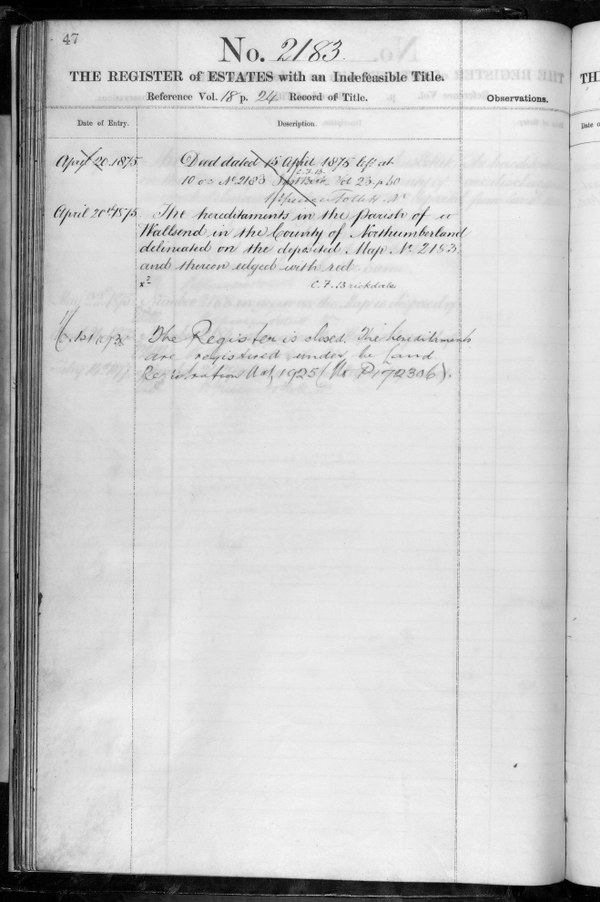 47
No. 2183
THE REGISTER of ESTATES with an Indefeasible Title.
Reference Vol. 18 p. 24 Record of Title.
Observations.
Date of Entry.
Description.
April 20 1875
Deed dated 15 April 1875 left at
10 No 2183 23 p 60
Follett
April 20th 1875
The hereditaments in the Parish of
Wallsend in the County of Northumberland
delineated on the deposited Map No 2183
and thereon edged with red.
C. F. Brickdale
The Register is closed. The hereditaments
are registered under the Land
Registration Act, 1925 (No P174306).
TH
Date o